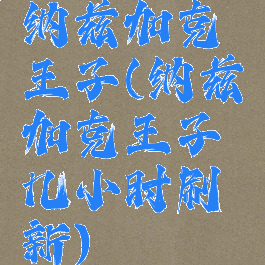 纳兹加克
王子(纳兹
加克王子
几小时刷
新)